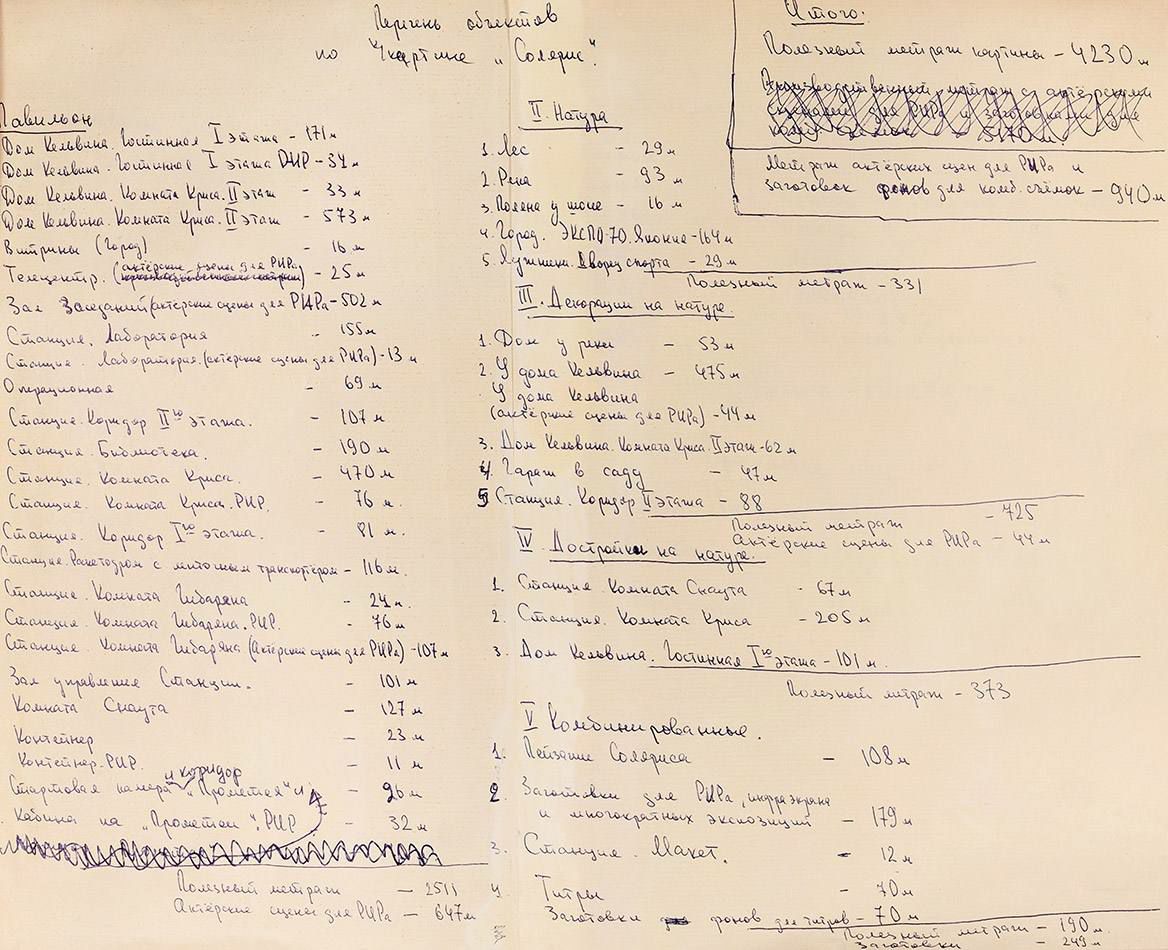 Перечень объектов
по к/картине „Солярис".
Павильон
Дом Кельвина. Гостинная I этажа - 171 м
Дом Кельвина. Гостинная I этажа РИР - 34 м
Дом Кельвина. Комната Криса. II этаж - 33 м
Дом Кельвина. Комната Криса. II этаж - 573 м
Витрины (Город) - 16 м
Телецентр. (актёрские сцены для РИРа) - 25 м
Зал Заседаний (актёрские сцены для РИРа - 502 м
Станция. Лаборатория - 155 м
Станция. Лаборатория. (актёрские сцены для РИРа) - 13 м
Операционная - 69 м
Станция. Коридор II го этажа. - 107 м
Станция. Библиотека. - 190 м
Станция. Комната Криса. - 470 м
Станция. Комната Криса. РИР. - 76 м.
Станция. Коридор I го этажа. - 81 м.
Станция. Ракетодром с ленточным транспортёром - 116 м.
Станция. Комната Гибаряна - 24 м.
Станция. Комната Гибаряна. РИР. - 76 м
Станция. Комната Гибаряна (Актёрские сцены для РИРа) - 107 м
Зал управления Станции. - 101 м
Комната Снаута - 127 м
Контейнер - 23 м
Контейнер. РИР. - 11 м
и коридор
Стартовая камера „Прометея" и - 26 м
Кабина на „Прометеи". РИР - 32 м
Полезный метраж - 2511
Актёрские сцены для РИРа - 647 м
II. Натура
1. Лес - 29 м
2. Река - 93 м
3. Поляна у шоссе - 16 м
4. Город. ЭКСПО-70. Япония - 164 м
5. Лужники. Дворец спорта - 29 м
Полезный метраж - 331
III. Декорации на натуре.
1. Дом у реки - 53 м
2. У дома Кельвина - 475 м
У дома Кельвина
(актёрские сцены для РИРа) - 44 м
3. Дом Кельвина. Комната Криса. II этаж - 62 м
4 Гараж в саду - 47 м
5 Станция. Коридор II этажа - 88
Полезный метраж - 725
Актёрские сцены для РИРа - 44 м
IV. Достройки на натуре.
1. Станция. Комната Снаута - 67 м
2. Станция. Комната Криса - 205 м
3. Дом Кельвина. Гостинная I го этажа - 101 м.
Полезный метраж - 373
V Комбинированные.
1. Пейзажи Соляриса - 108 м
2. Заготовки для РИРа, инфраэкрана
и многократных экспозиций - 179 м
3. Станция. Макет. - 12 м
4 Титры - 70 м
Заготовки фонов для титров - 70 м
Полезный метраж - 190 м.
Заготовки - 249 м
Итого:
Полезный метраж картины - 4230 м
Производственный метраж с актёрскими
сценами для РИРа и заготовками для
комб. съёмок - 5170 м.
Метраж актёрских сцен для РИРа и
заготовок фонов для комб. съёмок - 940 м